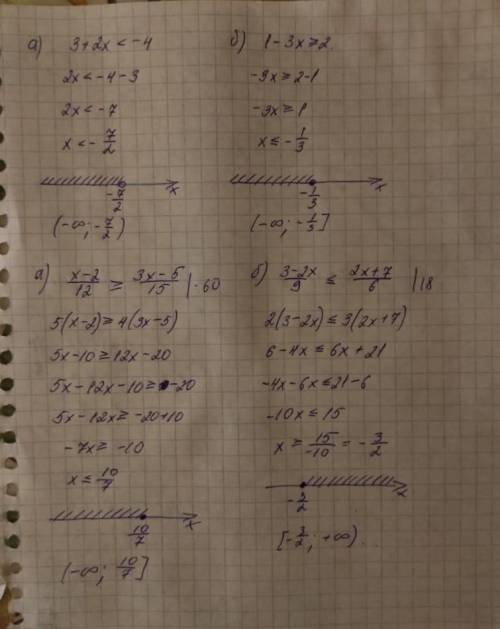 а) 3+2x < -4
2x < -4-3
2x < -7
x < - 7/2
-7/2 x
(-∞; -7/2)
б) 1-3x ≥ 2
-3x ≥ 2-1
-3x ≥ 1
x ≤ - 1/3
-1/3 x
(-∞; -1/3]
а) x-2/12 ≥ 3x-5/15 | ·60
5(x-2) ≥ 4(3x-5)
5x-10 ≥ 12x-20
5x-12x-10 ≥ -20
5x-12x ≥ -20+10
-7x ≥ -10
x ≤ 10/7
10/7 x
(-∞; 10/7]
б) 3-2x/9 ≤ 2x+7/6 | 18
2(3-2x) ≤ 3(2x+7)
6-4x ≤ 6x+21
-4x-6x ≤ 21-6
-10x ≤ 15
x ≥ 15/-10 = - 3/2
-3/2 x
[-3/2; +∞).